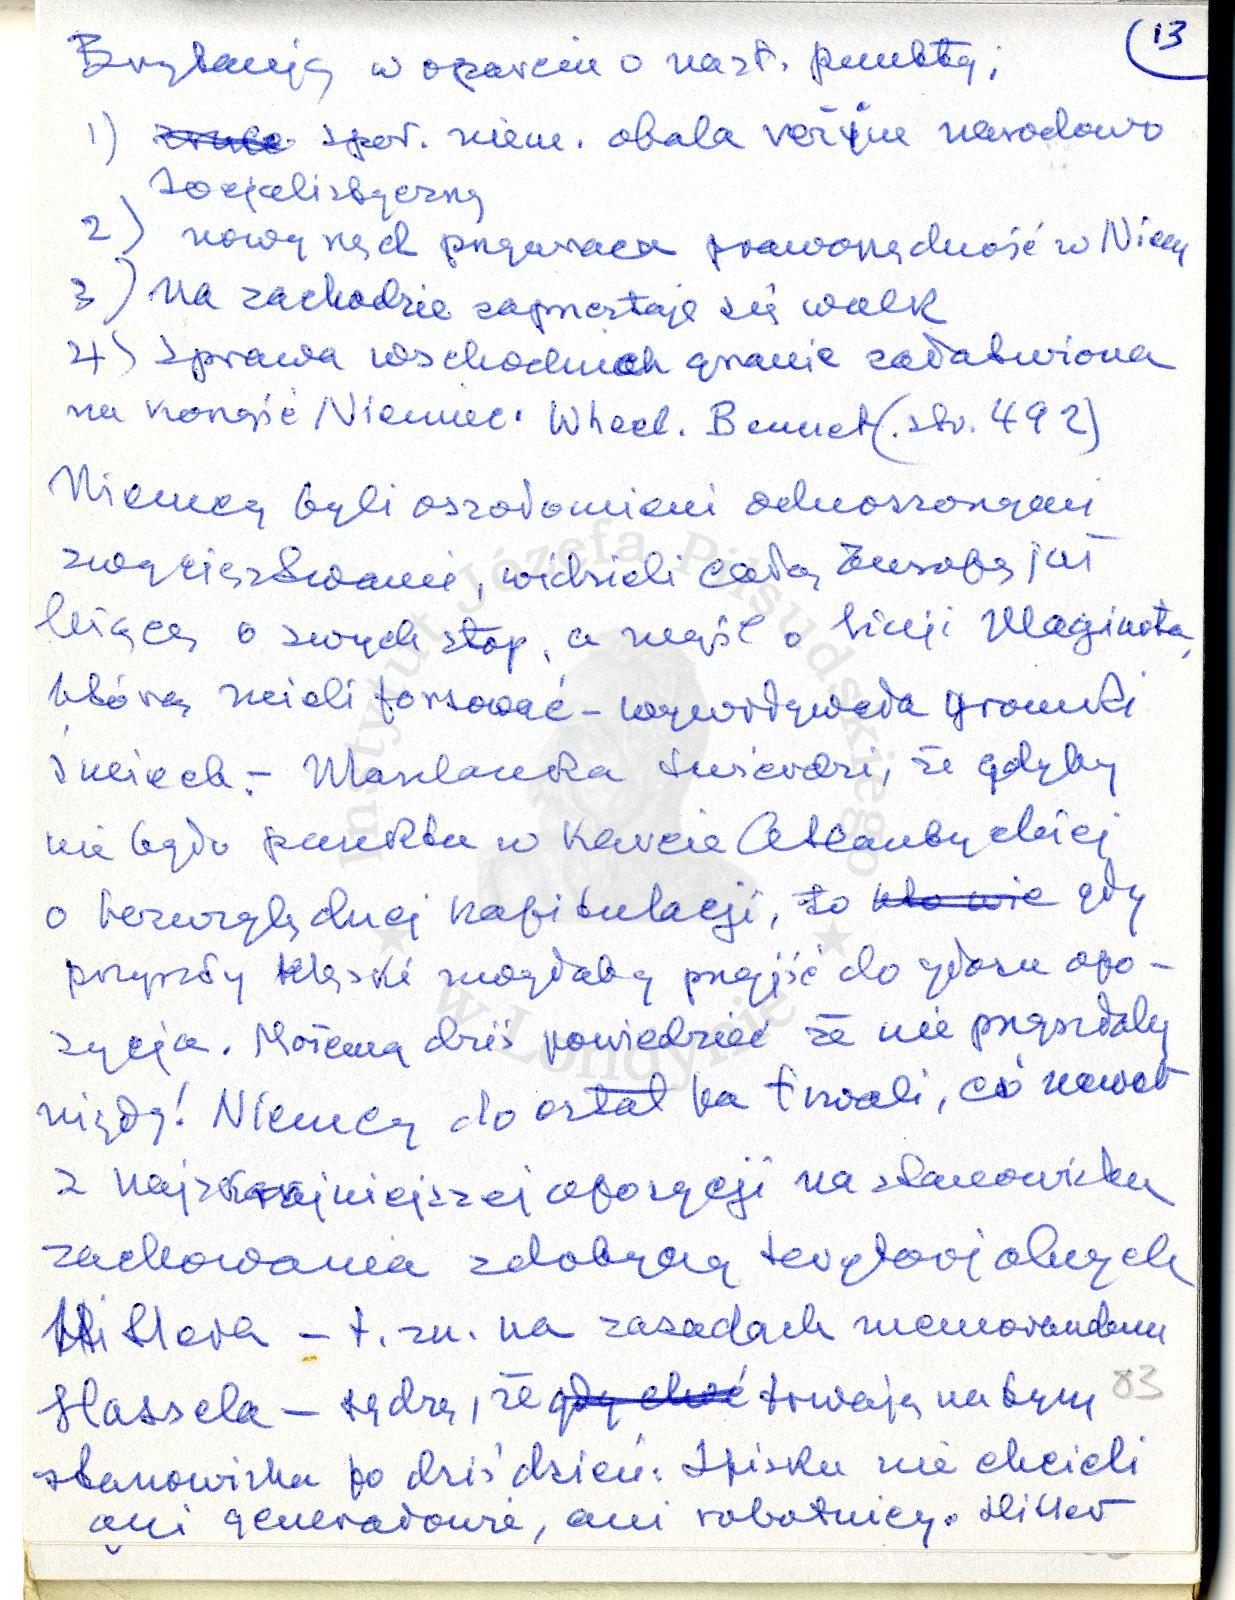 13
Brytanją w oparciu o nast. punkty:
1) społ. niem. obala reżim narodowo
socjalistyczny
2) nowy rząd przywraca praworządność w Niemcz
3) Na zachodzie zaprzestaje się walk
4) Sprawa wschodnich granic załatwiona
na korzyść Niemiec. Wheel. Bennet (str. 492)
Niemcy byli oszołomieni odnoszonymi
zwycięstwami, widzieli całą Europę już
leżącą u swych stóp, a myśl o linji Maginota,
którą mieli forsować – wywoływała gromki
śmiech. – Maslanka twierdzi, że gdyby
nie było punktu w Karcie Atlantyckiej
o bezwzględnej kapitulacji, to kto wie gdy
przyszły klęski mogłaby przyjść do głosu opo-
zycja. Możemy dziś powiedzieć że nie przyszłaby
nigdy! Niemcy do ostatka trwali, ci nawet
z najskrajniejszej opozycji na stanowisku
zachowania zdobyczy terytorjalnych
Hitlera – t. zn. na zasadach memorandum
Hassela – sądzę, że gdy choć trwają na tym
stanowisku po dziś dzień. Spisku nie chcieli
ani generałowie, ani robotnicy. Hitler
83
Instytut Józefa Piłsudskiego
w Londynie